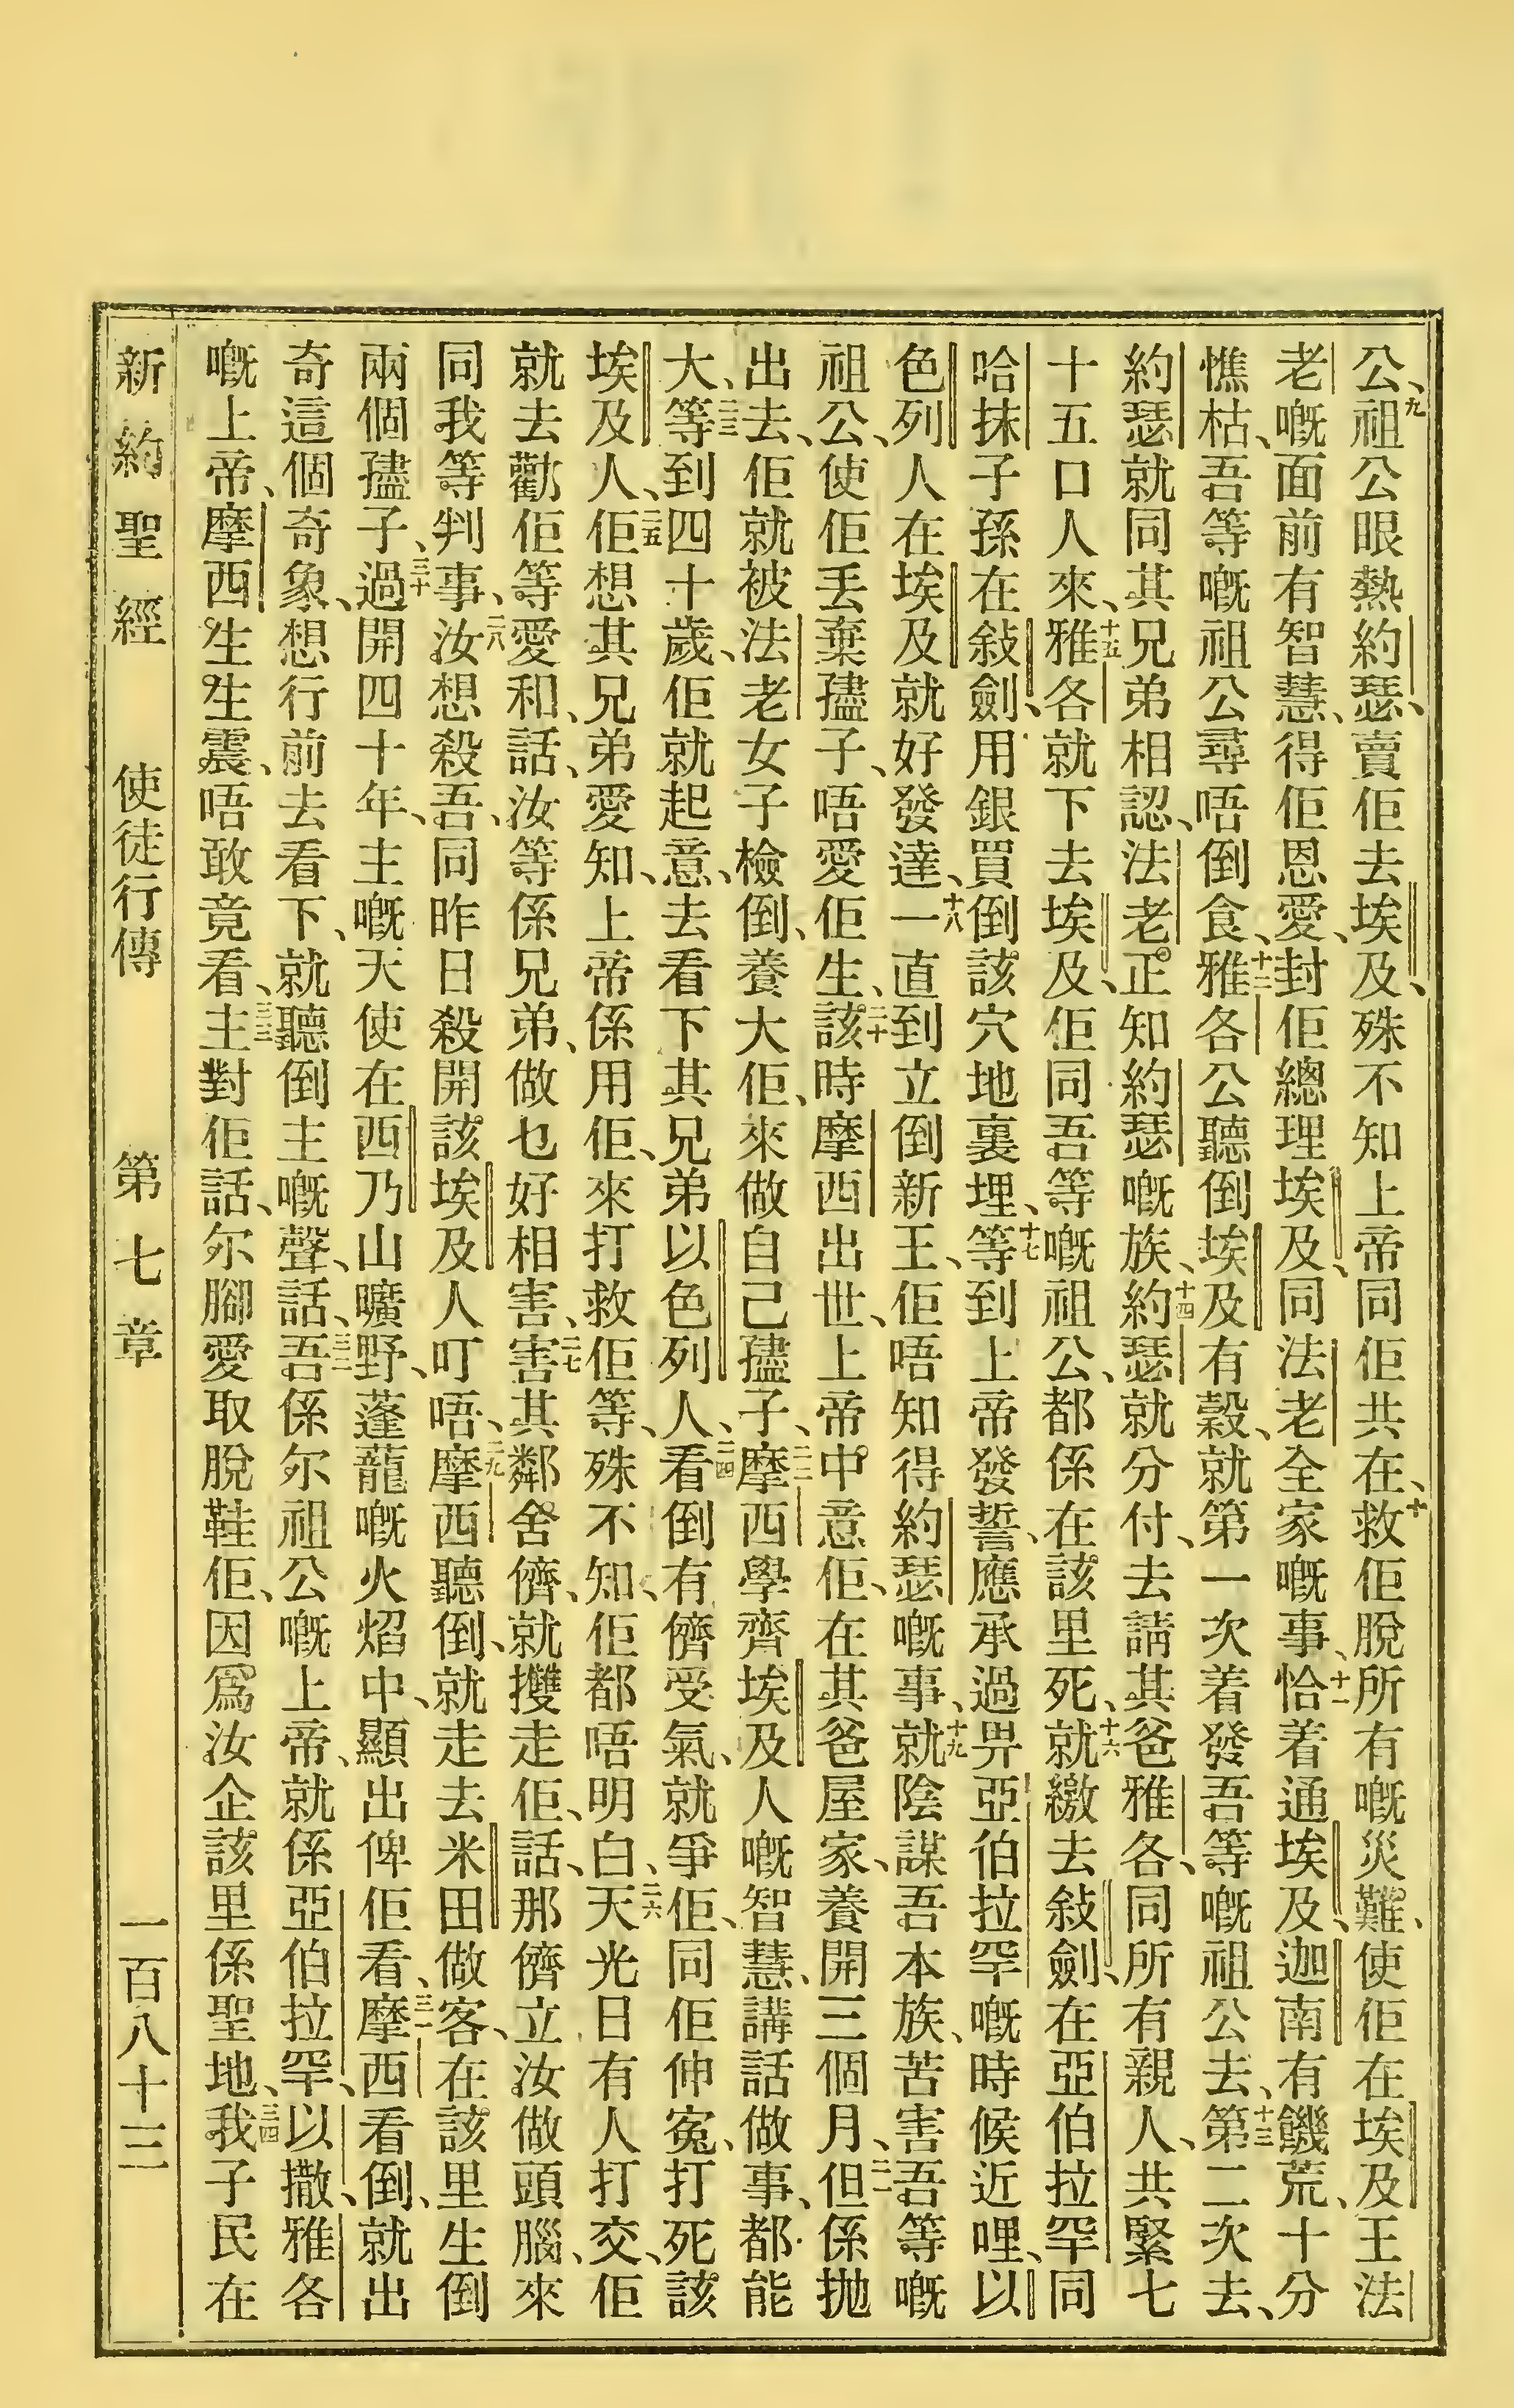 公、九祖公眼熱約瑟、賣佢去埃及、殊不知上帝同佢共在、十救佢脫所有嘅災難、使佢在埃及王法
老嘅面前有智慧、得佢恩愛、封佢總理埃及、同法老全家嘅事、十一恰着通埃及、迦南有饑荒、十分
憔枯、吾等嘅祖公尋唔倒食、十二雅各公聽倒埃及有穀、就第一次着發吾等嘅祖公去、十三第二次去、
約瑟就同其兄弟相認、法老正知約瑟嘅族、十四約瑟就分付、去請其爸雅各、同所有親人、共緊七
十五口人來、十五雅各就下去埃及、佢同吾等嘅祖公、都係在該里死、十六就繳去敍劍、在亞伯拉罕同
哈抹子孫在敍劍、用銀買倒該穴地裏埋、十七等到上帝發誓、應承過畀亞伯拉罕嘅時候近哩、以
色列人在埃及就好發達、十八一直到立倒新王、佢唔知得約瑟嘅事、十九就陰謀吾本族、苦害吾等嘅
祖公、使佢丢棄孻子、唔愛佢生、二十該時摩西出世、上帝中意佢、在其爸屋家、養開三個月、二一但係拋
出去、佢就被法老女子檢倒、養大佢、來做自己孻子、二二摩西學齊埃及人嘅智慧、講話做事、都能
大、二三等到四十歲、佢就起意、去看下其兄弟以色列人、二四看倒有儕受氣、就爭佢、同佢伸寃、打死該
埃及人、二五佢想其兄弟愛知、上帝係用佢、來打救佢等、殊不知、佢都唔明白、二六天光日有人打交、佢
就去勸佢等愛和、話、汝等係兄弟、做乜好相害、二七害其鄰舍儕、就㩳走佢、話、那儕立汝做頭腦、來
同我等判事、二八汝想殺吾、同昨日殺開該埃及人叮唔、二九摩西聽倒、就走去米田做客、在該里生倒
兩個孻子、三十過開四十年、主嘅天使在西乃山曠野、蓬蘢嘅火焰中、顯出俾佢看、三一摩西看倒、就出
奇這個奇象、想行前去看下、就聽倒主嘅聲、話、三二吾係尔祖公嘅上帝、就係亞伯拉罕、以撒、雅各
嘅上帝、摩西生生震、唔敢竟看、三三主對佢話、尔腳愛取脫鞋佢、因爲汝企該里係聖地、三四我子民在
新約聖經 使徒行傳 第七章 一百八十三